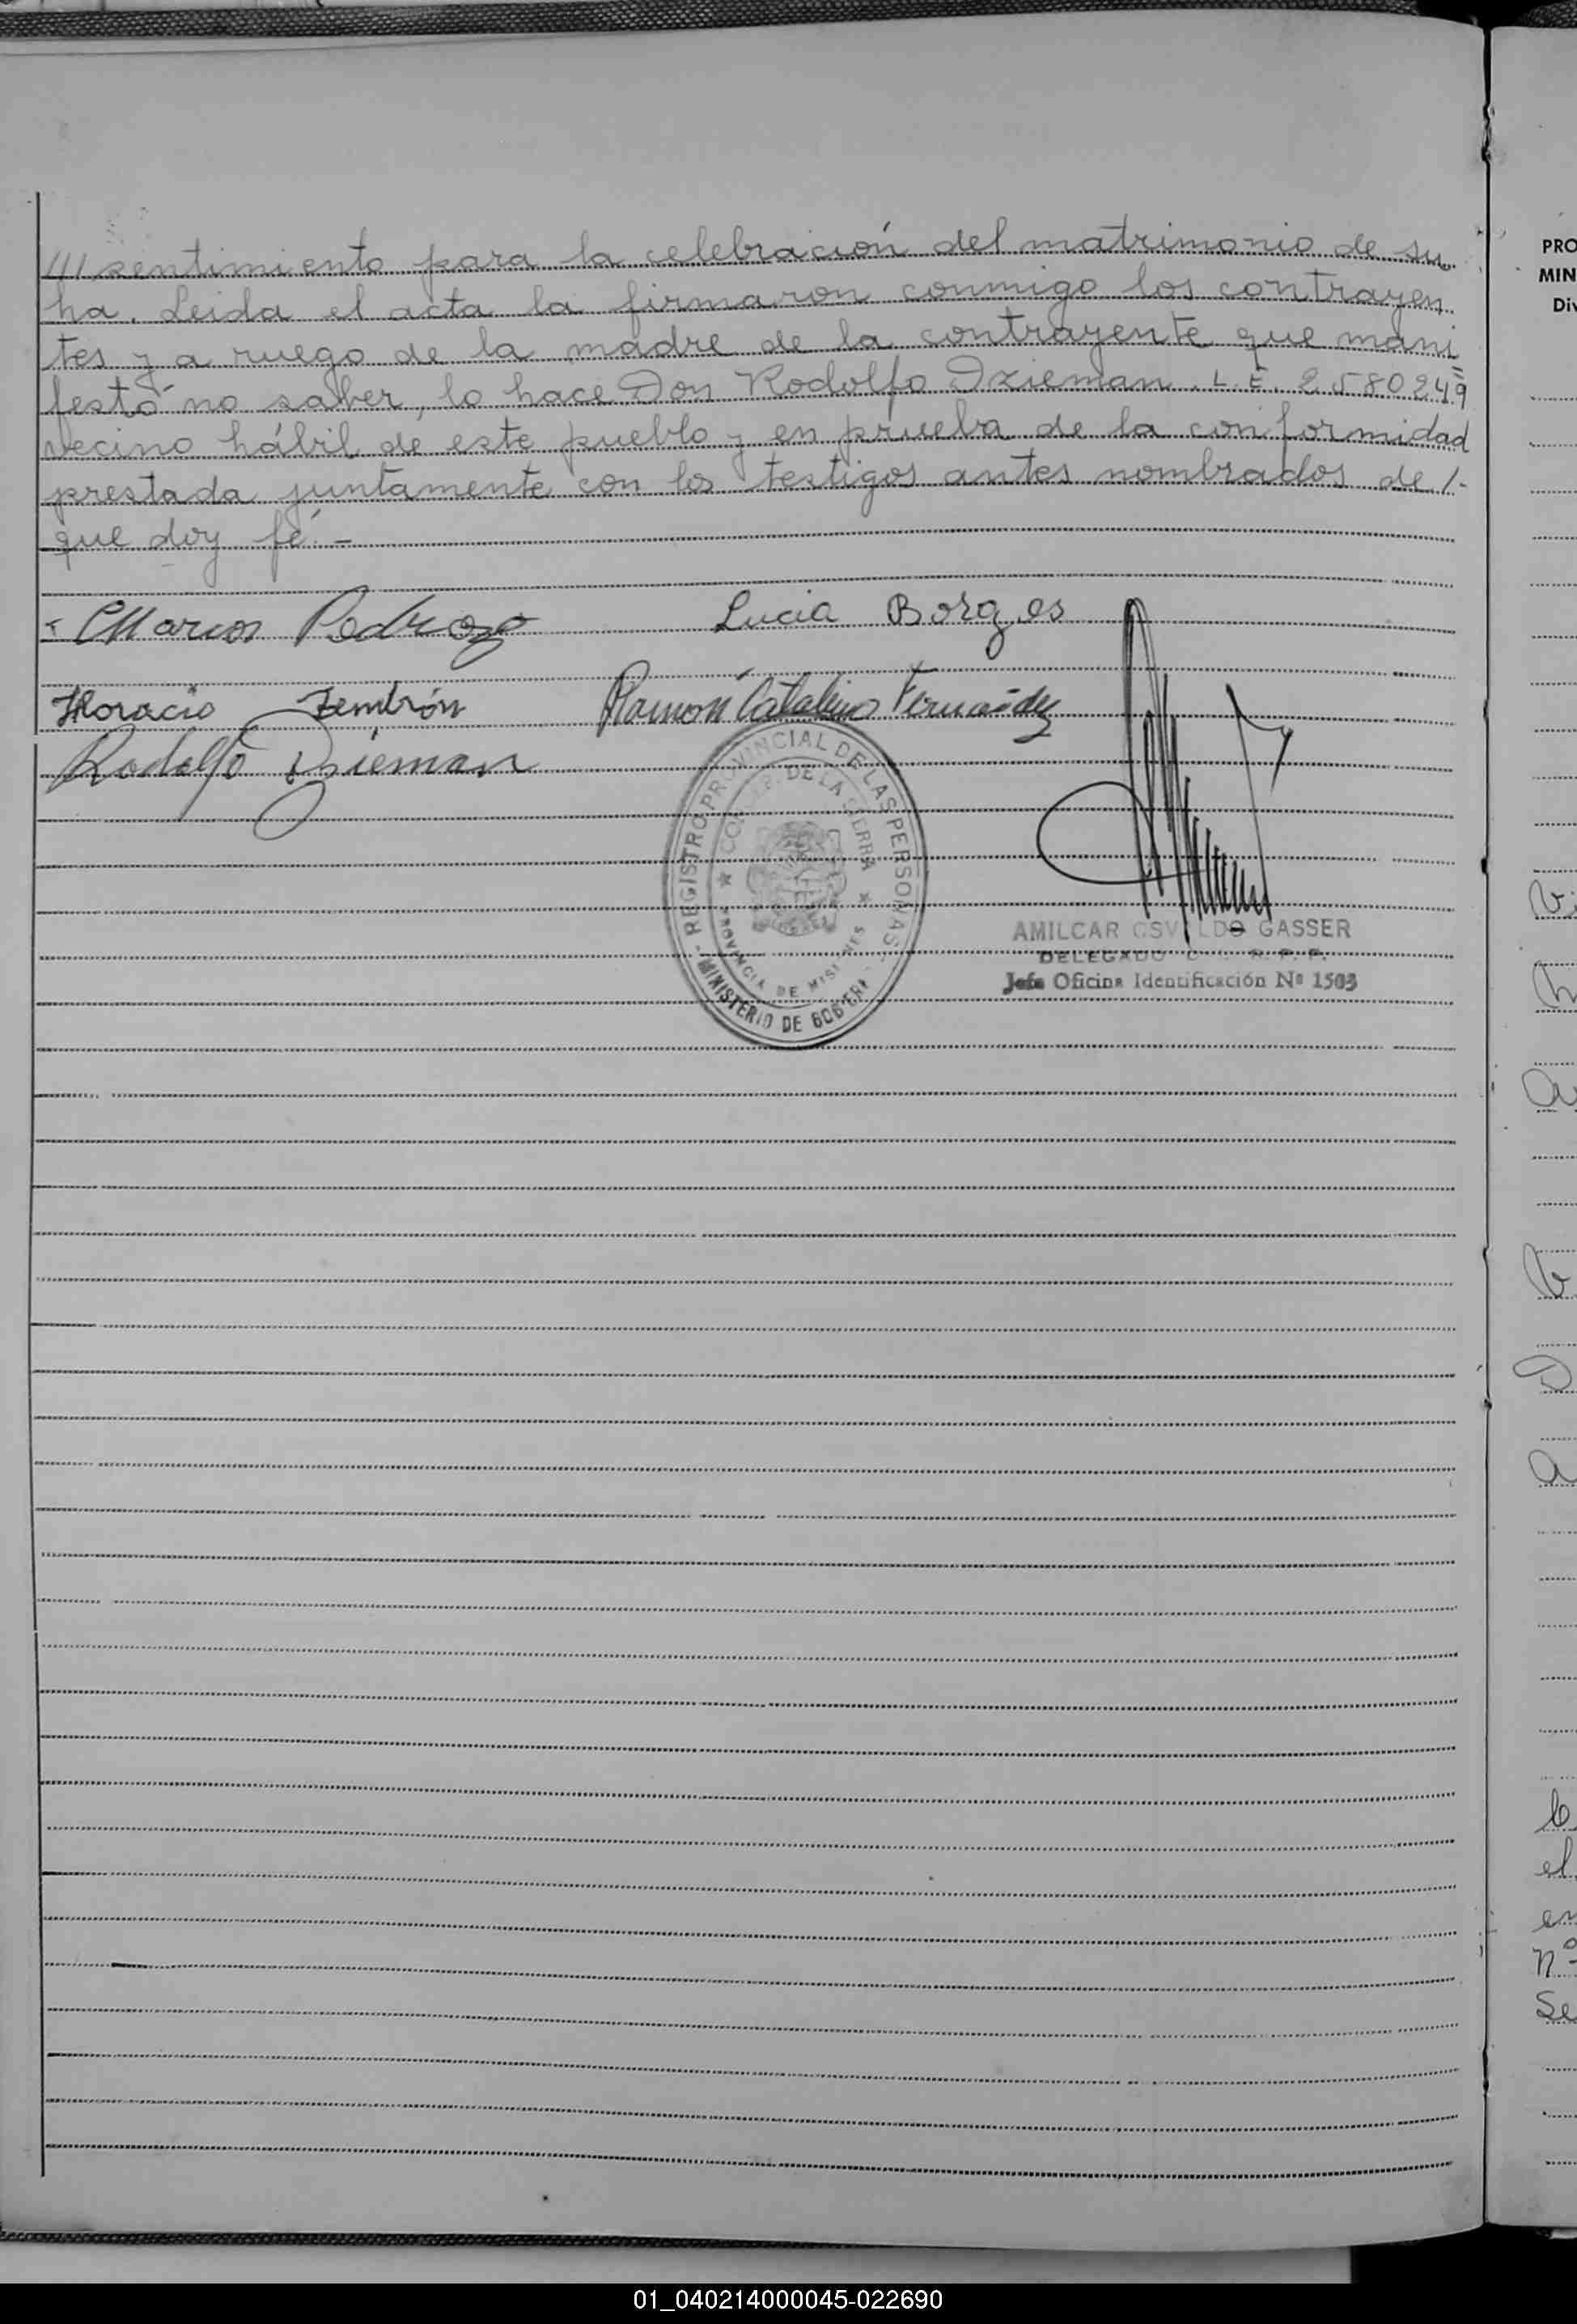 ///sentimiento para la celebración del matrimonio de su
ha. Leida el acta la firmaron conmigo los contrayen
tes y a ruego de la madre de la contrayente que mani
festó no saber, lo hace Don Rodolfo Dzieman. L. E. 2580249
vecino hábil de este pueblo y en prueba de la conformidad
prestada juntamente con los testigos antes nombrados de /-
que doy fé. -
Marcos Pedrozo Lucia Borges
Horacio Zembrón Ramón Catalino Fernández
Rodolfo Dzieman
REGISTRO PROVINCIAL DE LAS PERSONAS
DE LA SIERRA
PROVINCIA DE MISIONES
MINISTERIO DE GOBIER
AMILCAR OSVALDO GASSER
DELEGADO R. P. P.
Jefe Oficina Identificación Nº 1503
PRO
MIN
Div
el
en
nº
Se
01_040214000045-022690